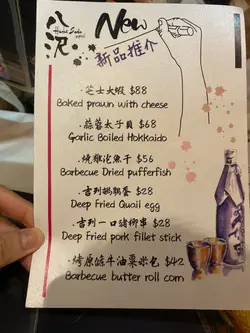 八沢
New
新品推介
·芝士大蝦 $88
Baked prawn with cheese
·蒜蓉太子貝 $68
Garlic Boiled Hokkaido
·燒雞泡魚干 $56
Barbecue Dried pufferfish
·吉列鵪鶉蛋 $28
Deep fried Quail egg
·吉列一口豬柳串 $28
Deep Fried pork fillet stick
·烤原條牛油粟米包 $42
Barbecue butter roll corn